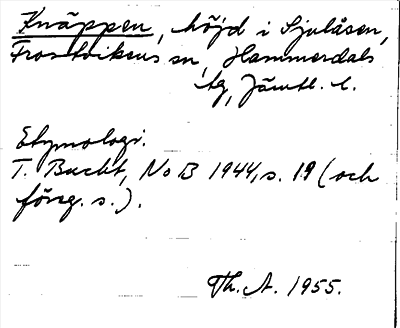 Knäppen, höjd i Sjulåsen,
Frostvikens sn, Hammerdals
tg, Jämtl. l.
Etymologi.
T. Bucht, NoB 1944, s. 19 (och
föreg. s.).
Th. A. 1955.